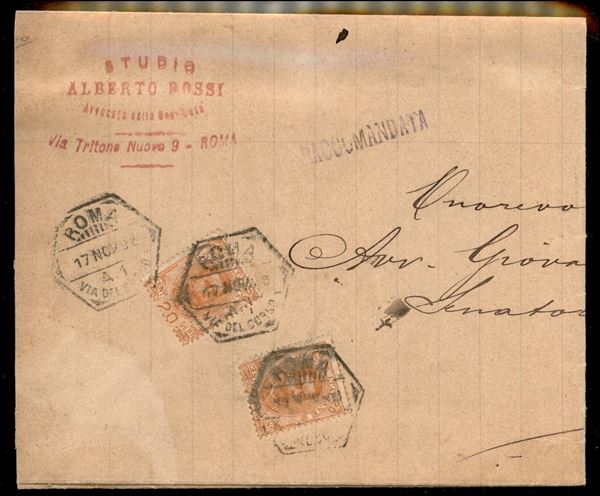 STUDIO
ALBERTO ROSSI
Avvocato della
Via Tritone Nuovo 9 - ROMA
RACCOMANDATA
Onorevo
Avv. Giova
Senator
ROMA
17 NOV 98
A.1
VIA DEL CORSO
ROMA
17 NOV 98
DEL CORSO
20